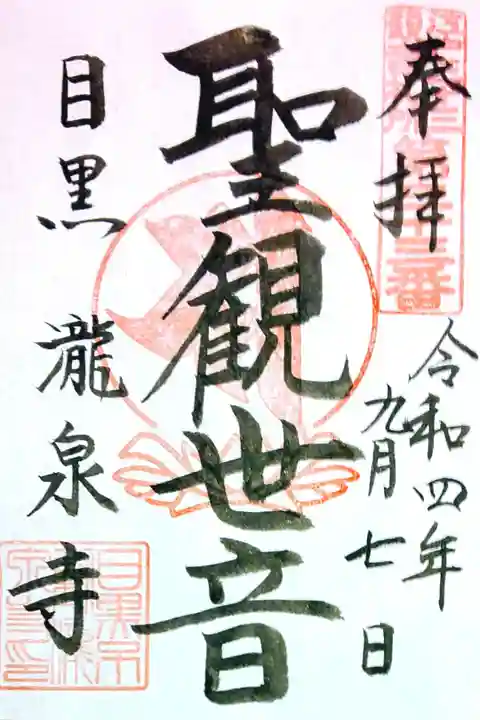 奉拝
令和四年
九月七日
聖観世音
目黒 瀧泉寺